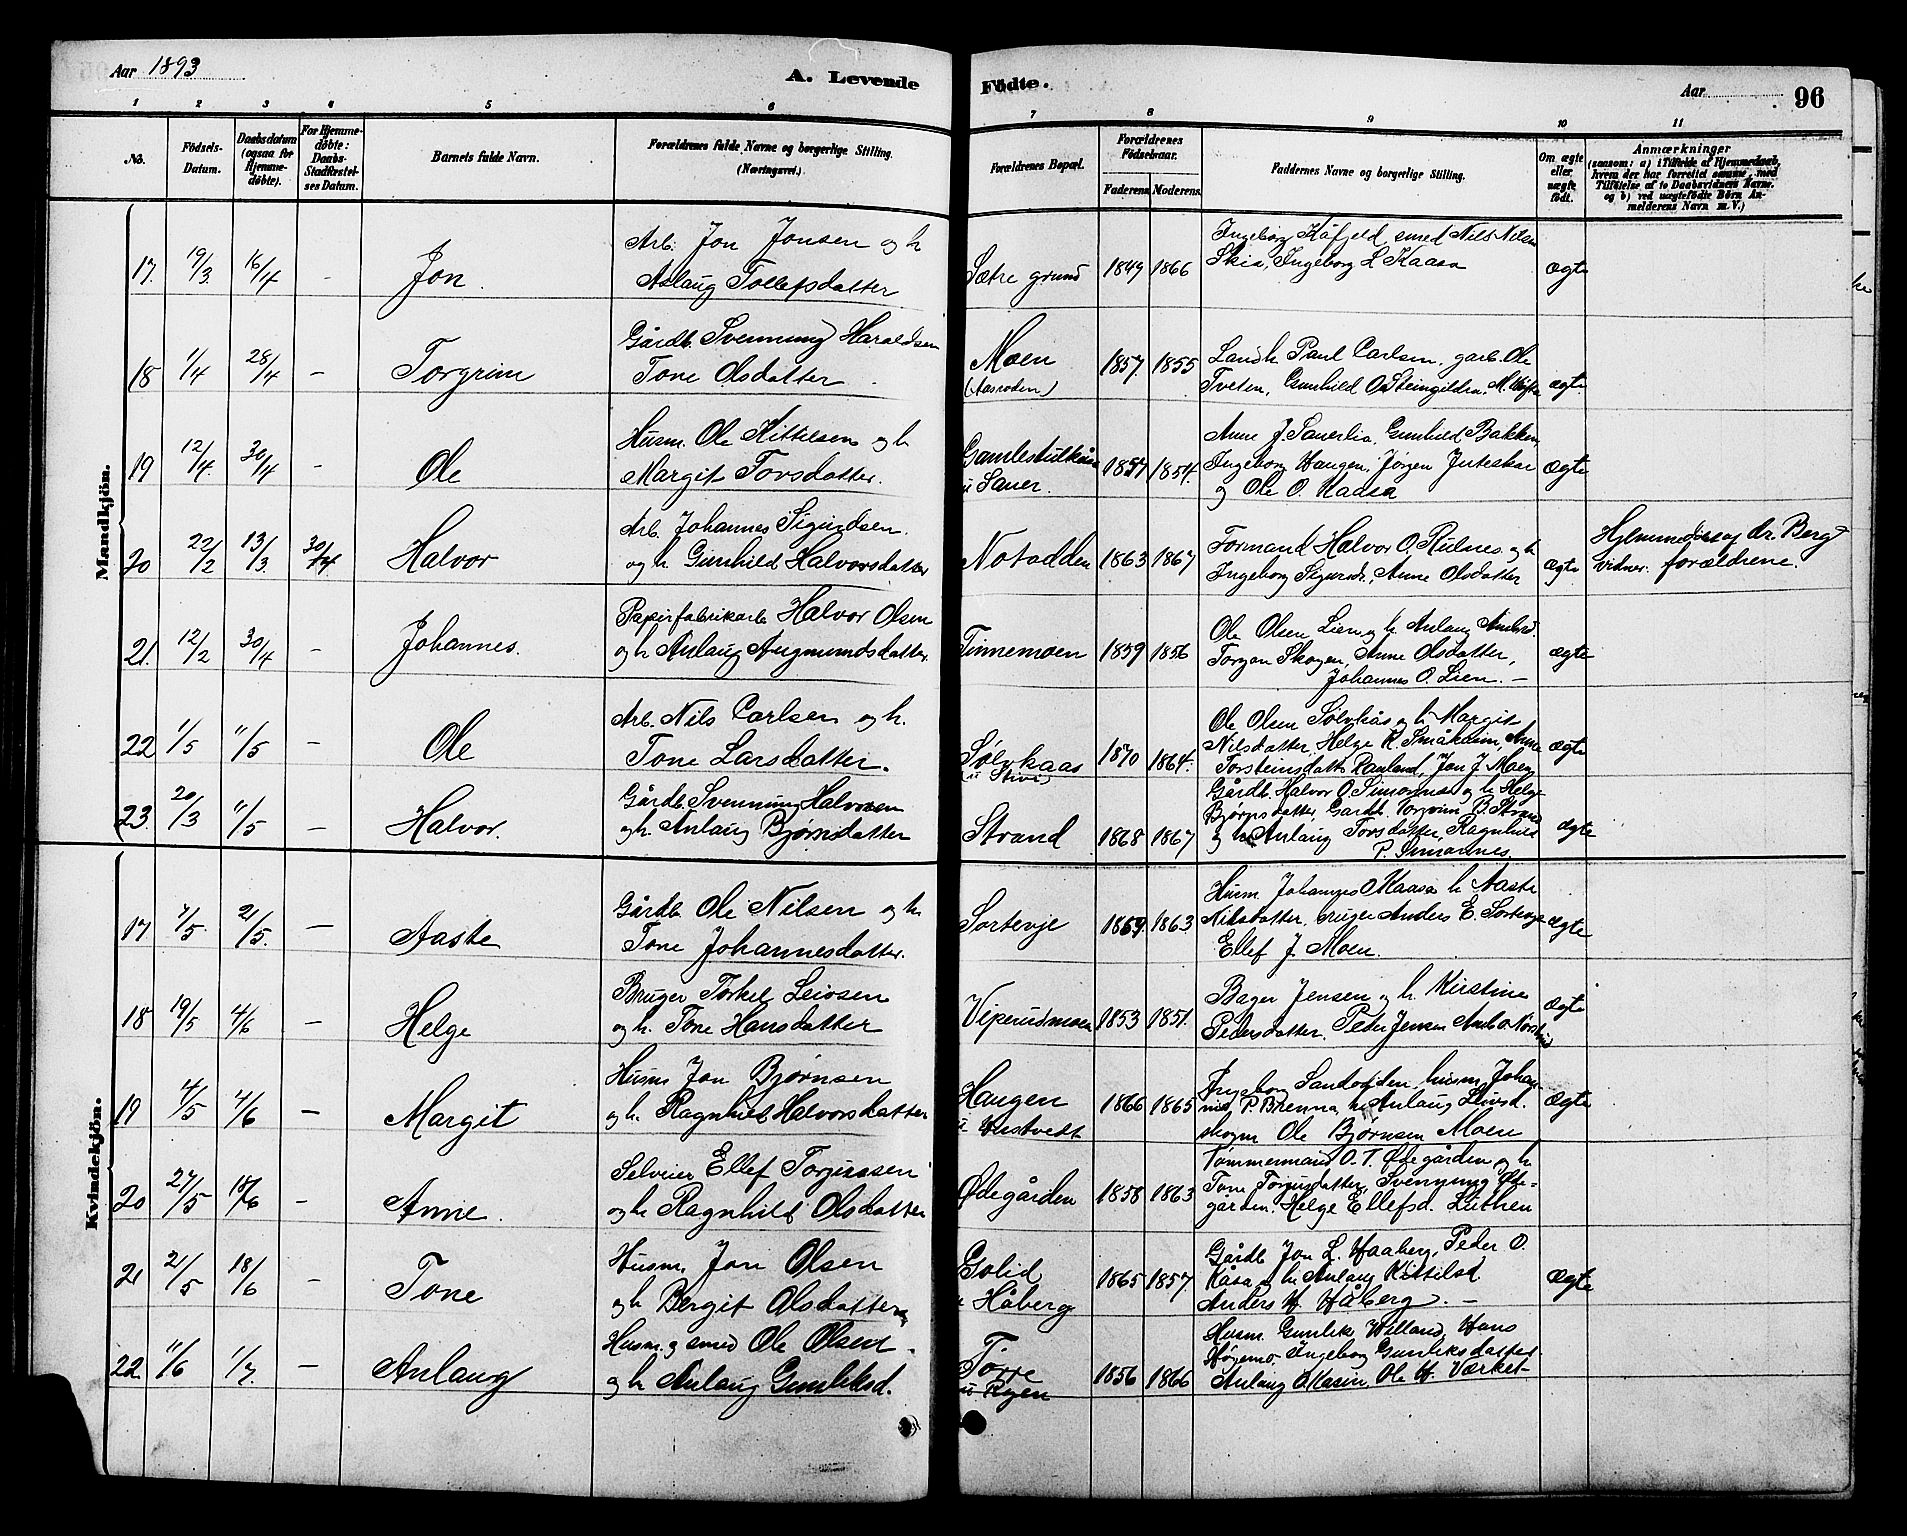 Aar 1893
A. Levende
Fødte.
Aar
96
1 2 3 4 5 6 7 8 9 10 11
No.
Fødsels-Datum.
Daabsdatum (ogsaa for Hjemmedøbte).
For Hjemmedøbte: Daabs-Stadfæstelses Datum.
Barnets fulde Navn.
Forældrenes fulde Navne og borgerlige Stilling. (Næringsvei.)
Forældrenes Bopæl.
Forældrenes Fødselsaar.
Faderens. Moderens.
Faddernes Navne og borgerlige Stilling.
Om ægte eller uægte født.
Anmærkninger
(saasom: a) i Tilfælde af Hjemmedaab, hvem der har forrettet samme, med Tilføielse af to Daabsvidners Navne, og b) ved uægtefødte Børn Anmelderens Navn m. V.)
Mandkjøn.
17. 19/3 16/4 - Jon.
Arb. Jon Jonsen og h
Aslaug Tollefsdatter
Sætre grund 1849 1866
Ingeborg Kåfjeld, smed Nils Nilsen
Skie, Ingeborg L Kaasa
ægte
18 1/4 28/4 - Torgrim
Gårdb. Svennung Haraldsen
Tone Olsdatter
Moen
1857. 1855
Landh. Paul Carlsen, garb. Ole
Tveten, Gunhild O. ægte
19 12/4 30/4 - Ole
Husm. Ole Kittelsen og h
Margit Torsdatter.
u Sauer. 1857 1854.
Anne J. Sauerlia, Gunhild Bakken
Ingeborg Haugen, Jørgen Juteskar
og Ole O. Kaasa
ægte
20 22/2 13/3 30/4 Halvor
Arb. Johannes Sigurdsen
og h. Gunhild Halvorsdatter
Notodden 1863 1867
Formand Halvor O. og h
Ingeborg Sigursdr, Anne Olsdatter ægte
Hjemmedøbt af dr. Berg
vidner. forældrene.
21. 12/2 30/4 - Johannes.
Papirfabrikarb Halvor Olsen
og h Anlaug Augmundsdatter.
Tinnemoen 1859 1856
Ole Olsen Lien og h Anlaug
Torgon Skogen, Anne Olsdatter,
Johannes O. Lien. -
ægte
22 1/5 11/5 - Ole
Arb. Nils Carlsen og h.
Tone Larsdatter.
Sølvkaas
1870 1864.
Ole Olsen Sølvkås og h Margit
Nilsdatter, Helge R. Småkåim, Anne
Torsteinsdatt. Rauland, Jon J. Moen
ægte
23. 20/3 11/5 - Halvor.
Gårdb. Svennung Halvorsen
og h. Anlaug Bjørnsdatter
Strand 1868 1867
Gårdb. Halvor O. Simonnes og h Helge
Bjørnsdatter, Gardb. Torgrim B. Strand
og h Anlaug Torsdatter, Ragnhild
P. Simonnes.
ægte
Kvindekjøn.
17 7/5 21/5. - Aaste
Gårdb Ole Nilsen og h.
Tone Johannesdatter.
Sortevje 1869 1863
Husm. Johannes O Kaasa h. Aaste
Nilsdatter, bruger Anders E. Sortevje
Ellef J. Moen.
ægte
18 19/5 4/6 - Helge
Bruger Torkel Leivsen
og h. Tone Hansdatter
Viperudmoen 1853 1851.
Bager Jensen og h. Kirstine
Pedersdatter, Peder Jensen
ægte
19 4/5 4/6 - Margit
Husm Jon Bjørnsen
og h. Ragnhild Halvorsdatter
Haugen
1866 1865
Ingeborg Sandodden, husm. Johannes
P. Brenna, h. Anlaug Leivsd.
skogen Ole Bjørnsen Moen
ægte
20 27/5 18/6 - Anne.
Selveier Ellef Torjussen
og h Ragnhild Olsdatter
Ødegården 1858 1863
Tømmermand O. T. Ødegården og h
Tone Torjusdatter, Svennung Øde-
gården, Helge Ellefsd. Luthen
21 21/5 18/6 - Tone
Husm. Jon Olsen
og h Bergit Olsdatter
Golid
u Håberg 1865 1857.
Gårdb Jon L. Haaberg, Peder O.
Kåsa og h. Anlaug Kittilsd
Anders H Håberg. -
ægte
22. 11/6 1/7. - Anlaug
Husm. og smed Ole Olsen
og h Anlaug Gunleksd.
Torre
u Ryen
1856 1866
Husm. Gunlek Willand, Hans
Høgemo, Ingeborg Gunleksdatter
Anlaug O. Ole H. Værket